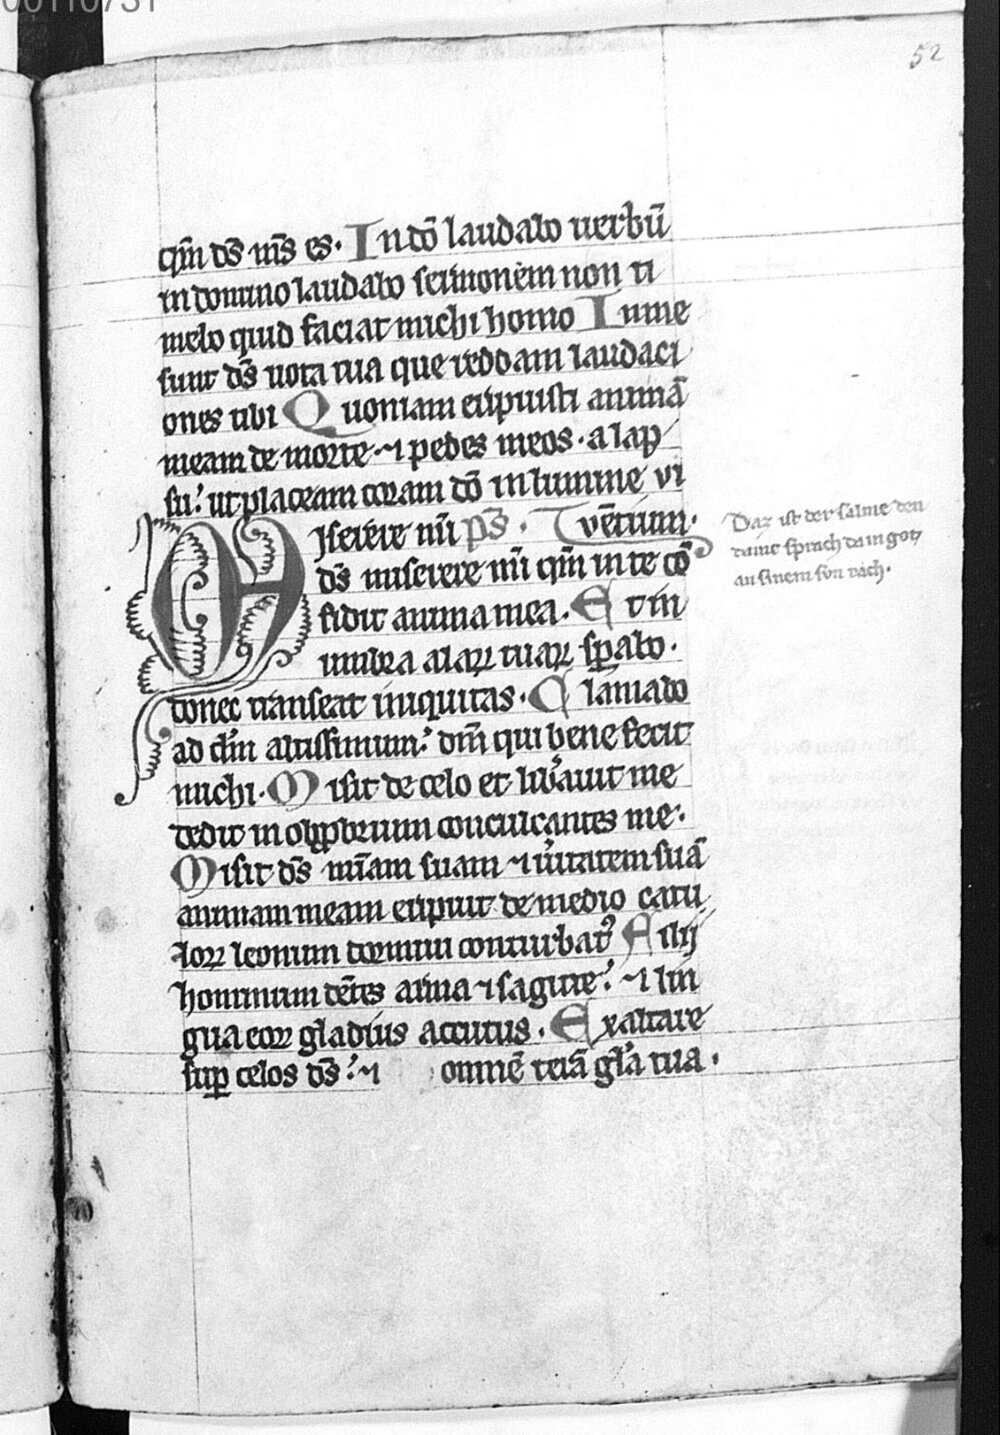 00110731
52
qm̄ ds̄ m̄s es. In dō laudabo uerbū
in domino laudabo sermonem non ti
mebo quid faciat michi homo In me
sunt ds̄ uota tua que reddam laudaci
ones tibi Quoniam eripuisti animā
meam de morte ⁊ pedes meos. a lap
su. ut placeam coram dō in lumine vi
Miserere mi ps̄. uētium.
ds̄ miserere mī qm̄ in te cō
fidit anima mea. Et in
umbra alaꝝ tuaꝝ sꝑabo.
donec transeat iniquitas. Clamabo
ad dm̄ altissimum. dm̄ qui bene fecit
michi. Misit de celo et libauit me
dedit in obp̱brium conculcantes me.
Misit ds̄ mīam suam ⁊ ūitatem suā
animam meam eripuit de medio catu
loꝝ leonum dormiui conturbat᷒ Filij
hominum dētes arma ⁊ sagitte. ⁊ lin
gua eoꝝ gladius accutus. Exaltare
suꝑ celos ds̄. ⁊ omnē terā gła tua.
Daz ist der salme den
sprach da in got
an sinem sun rach.